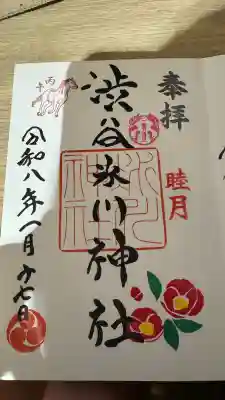 奉拝
睦月
渋谷氷川神社
氷川
神社
丙午
令和八年一月十七日